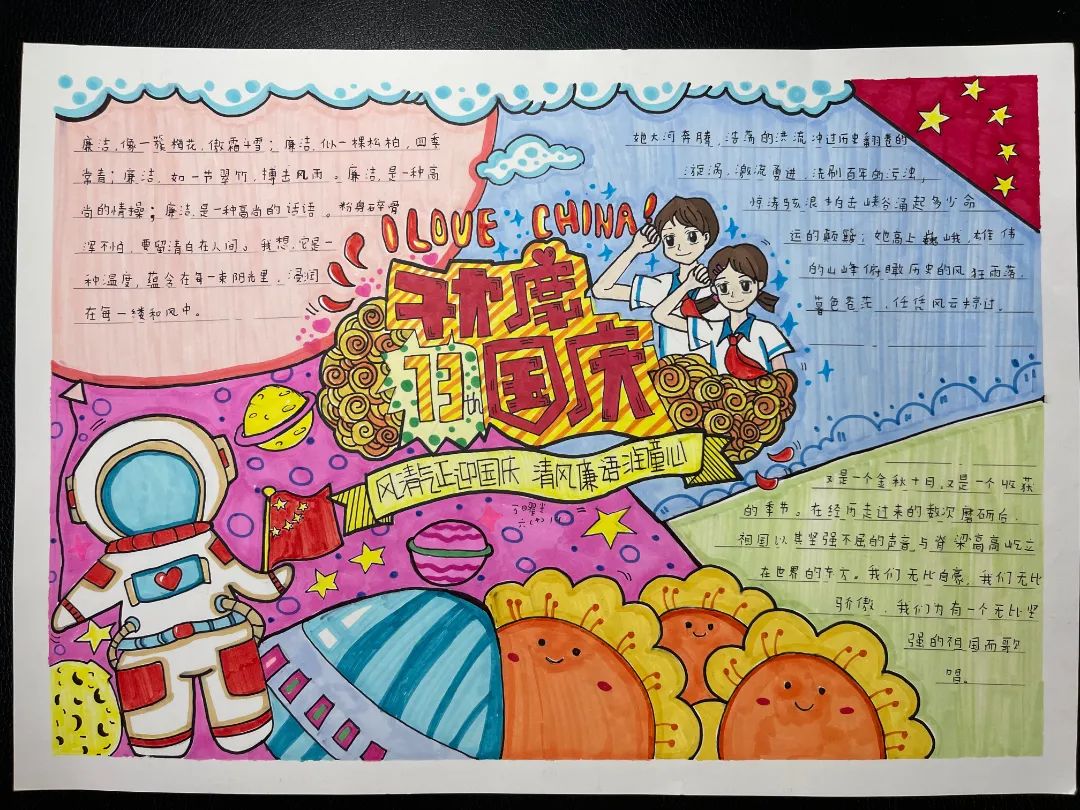 廉洁,像一簇梅花,傲霜斗雪;廉洁,似一棵松柏,四季
常青;廉洁,如一节翠竹,搏击风雨。廉洁,是一种高
尚的情操;廉洁,是一种高尚的话语。粉身碎骨
浑不怕,要留清白在人间。我想,它是一
种温度,蕴含在每一束阳光里,浸润
在每一缕和风中。
I LOVE CHINA!
欢度
71th
国庆
风清气正迎国庆 清风廉语润童心
六(4)
她大河奔腾,浩荡的洪流冲过历史翻卷的
漩涡,激流勇进,洗刷百年的污浊,
惊涛骇浪拍击峡谷涌起多少命
运的颠簸;她高上巍峨,雄伟
的山峰俯瞰历史的风狂雨落,
暮色苍茫,任凭风云掠过。
又是一个金秋十月,又是一个收获
的季节。在经历走过来的数次磨砺后,
祖国以其坚强不屈的声音与脊梁高高屹立
在世界的东方。我们无比自豪,我们无比
骄傲,我们为有一个无比坚
强的祖国而歌
唱。